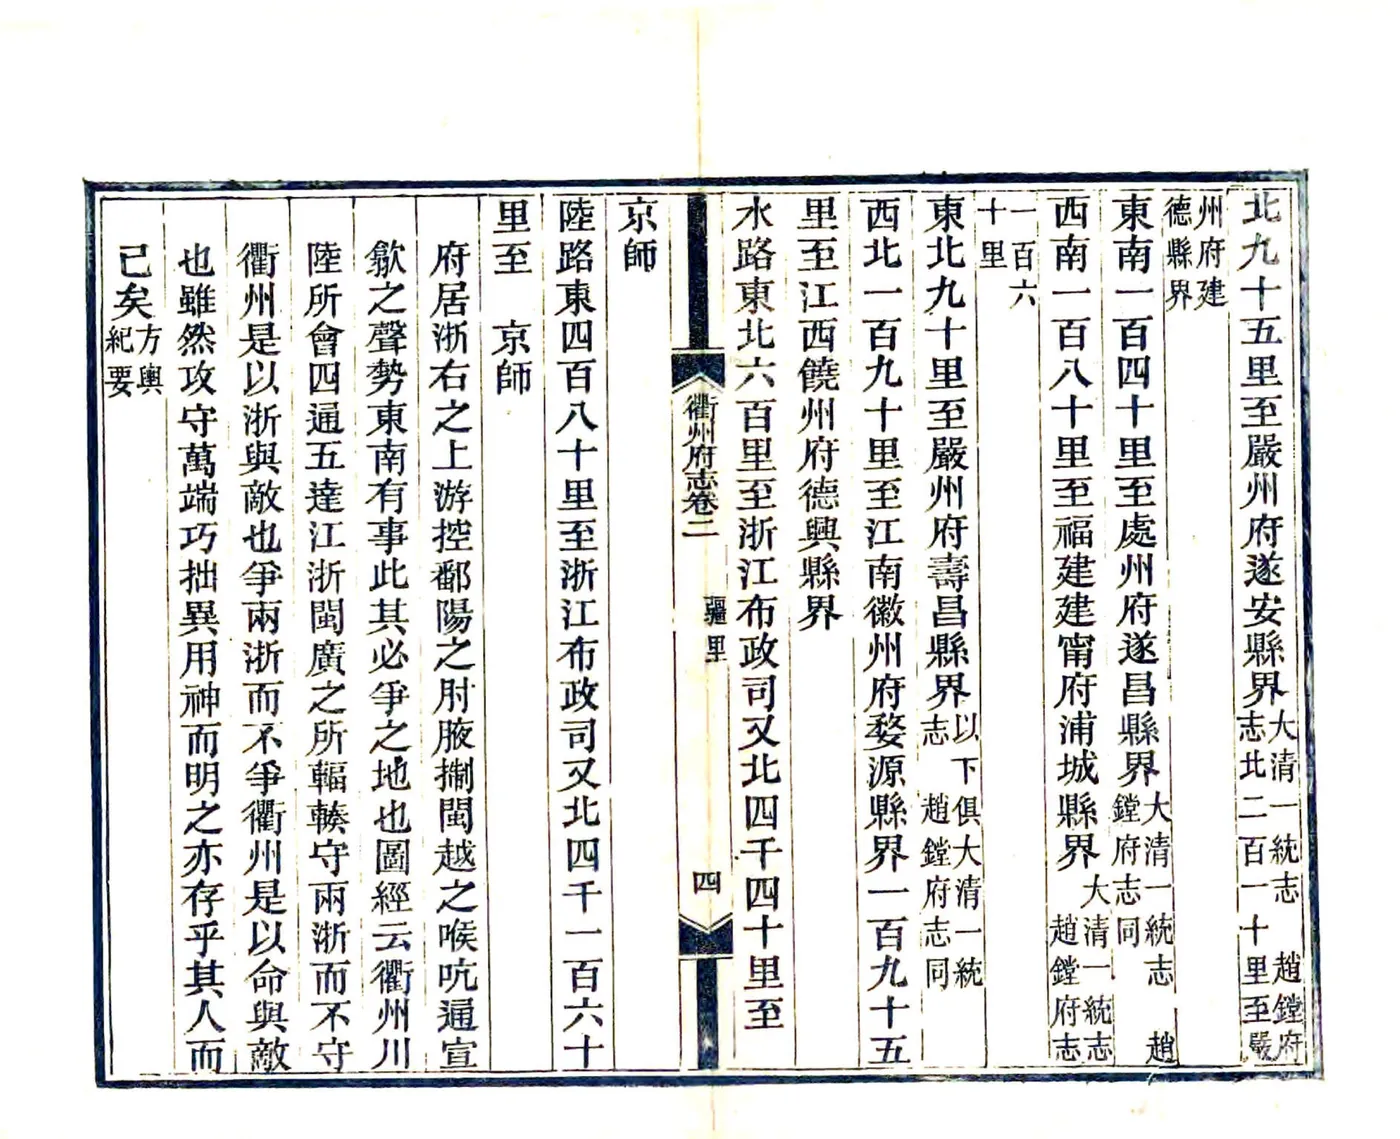 北九十五里至嚴州府遂安縣界大清一統志 趙鏜府志北二百一十里至嚴
州府建德縣界
東南一百四十里至處州府遂昌縣界大清一統志 趙鏜府志同
西南一百八十里至福建建甯府浦城縣界大清一統志 趙鏜府志
一百六十里
東北九十里至嚴州府壽昌縣界以下俱大清一統志 趙鏜府志同
西北一百九十里至江南徽州府婺源縣界一百九十五
里至江西饒州府德興縣界
水路東北六百里至浙江布政司又北四千四十里至
衢州府志卷二 疆里 四
京師
陸路東四百八十里至浙江布政司又北四千一百六十
里至 京師
府居浙右之上游控鄱陽之肘腋掣閩越之喉吭通宣
歙之聲勢東南有事此其必爭之地也圖經云衢州川
陸所會四通五達江浙閩廣之所輻輳守兩浙而不守
衢州是以浙與敵也爭兩浙而不爭衢州是以命與敵
也雖然攻守萬端巧拙異用神而明之亦存乎其人而
已矣方輿紀要